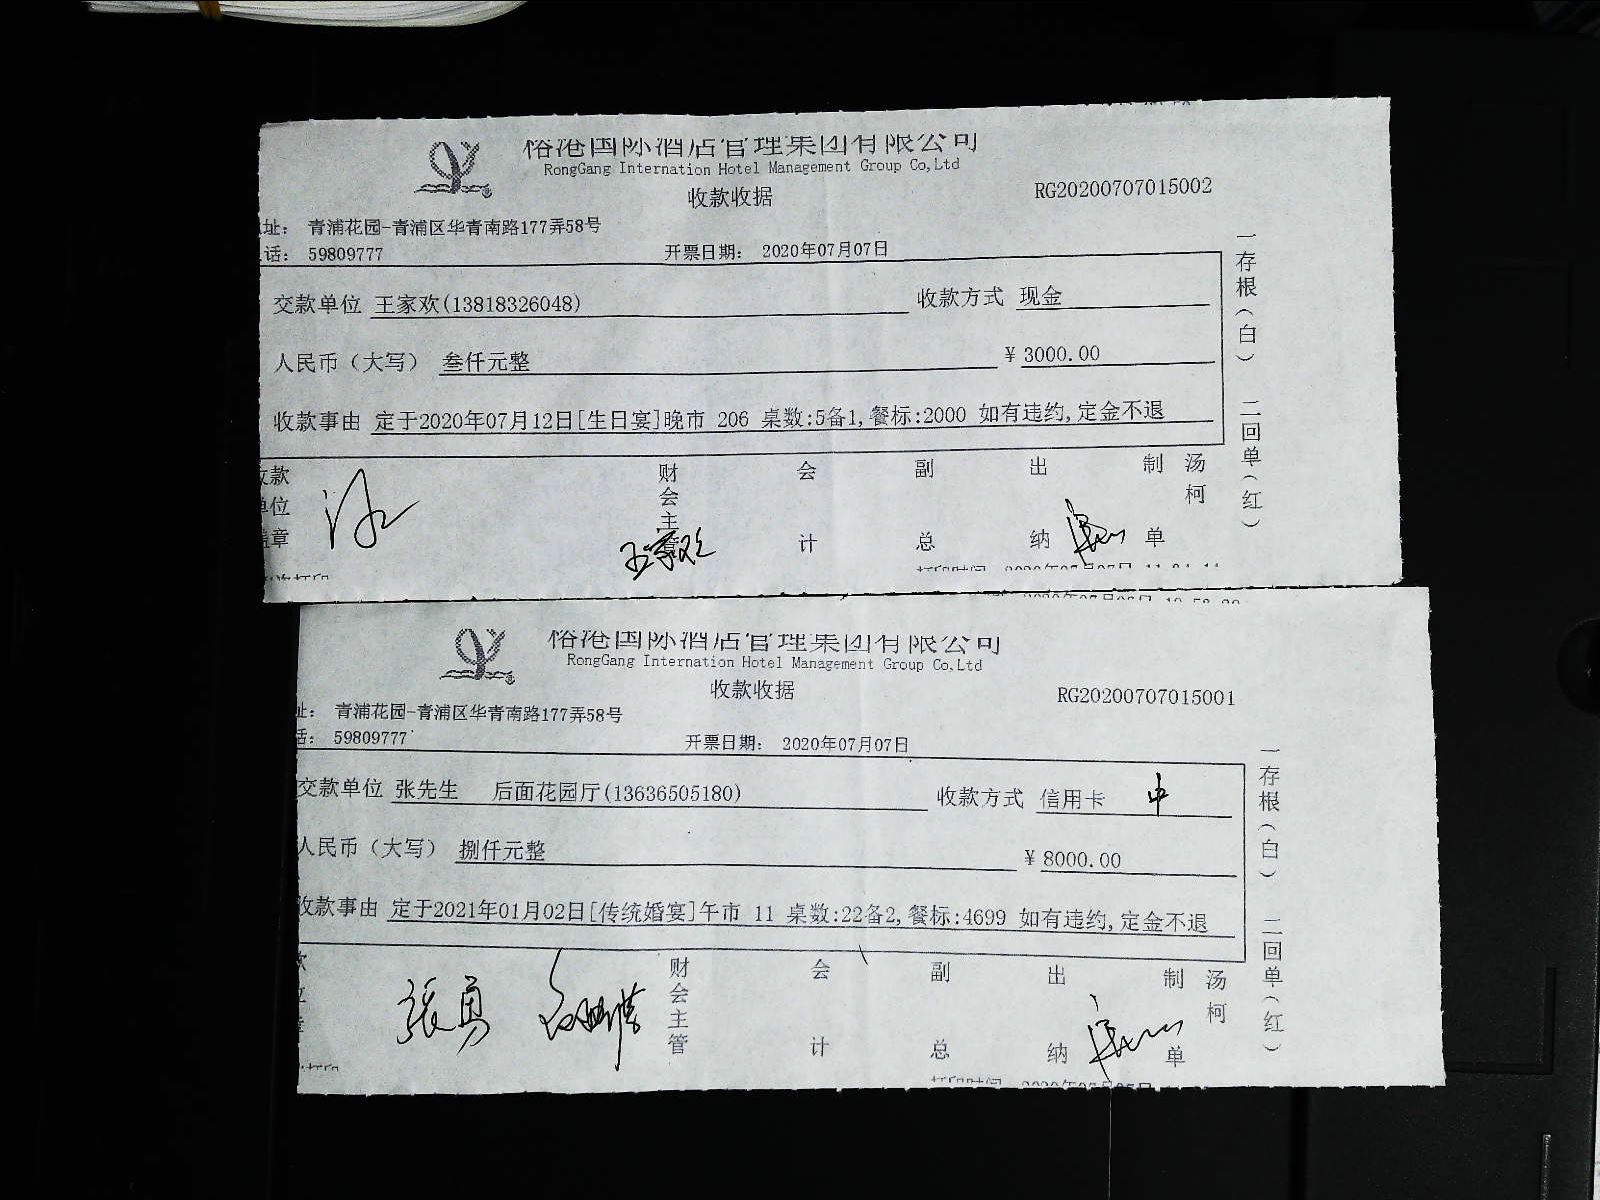 俗港国际酒店管理集团有限公司
RongGang Internation Hotel Management Group Co,Ltd
收款收据
RG20200707015002
址： 青浦花园-青浦区华青南路177弄58号
话： 59809777
开票日期： 2020年07月07日
交款单位 王家欢(13818326048) 收款方式 现金
人民币（大写） 叁仟元整 ¥ 3000.00
收款事由 定于2020年07月12日[生日宴]晚市 206 桌数:5备1,餐标:2000 如有违约,定金不退
收款单位盖章 财会主管 王家欢 会计 副总 出纳 制单 汤柯
一存根（白） 二回单（红）
俗港国际酒店管理集团有限公司
RongGang Internation Hotel Management Group Co.Ltd
收款收据
RG20200707015001
址： 青浦花园-青浦区华青南路177弄58号
话： 59809777
开票日期： 2020年07月07日
交款单位 张先生 后面花园厅(13636505180) 收款方式 信用卡 中
人民币（大写） 捌仟元整 ¥ 8000.00
收款事由 定于2021年01月02日[传统婚宴]午市 11 桌数:22备2,餐标:4699 如有违约,定金不退
張勇 财会主管 会计 副总 出纳 制单 汤柯
一存根（白） 二回单（红）